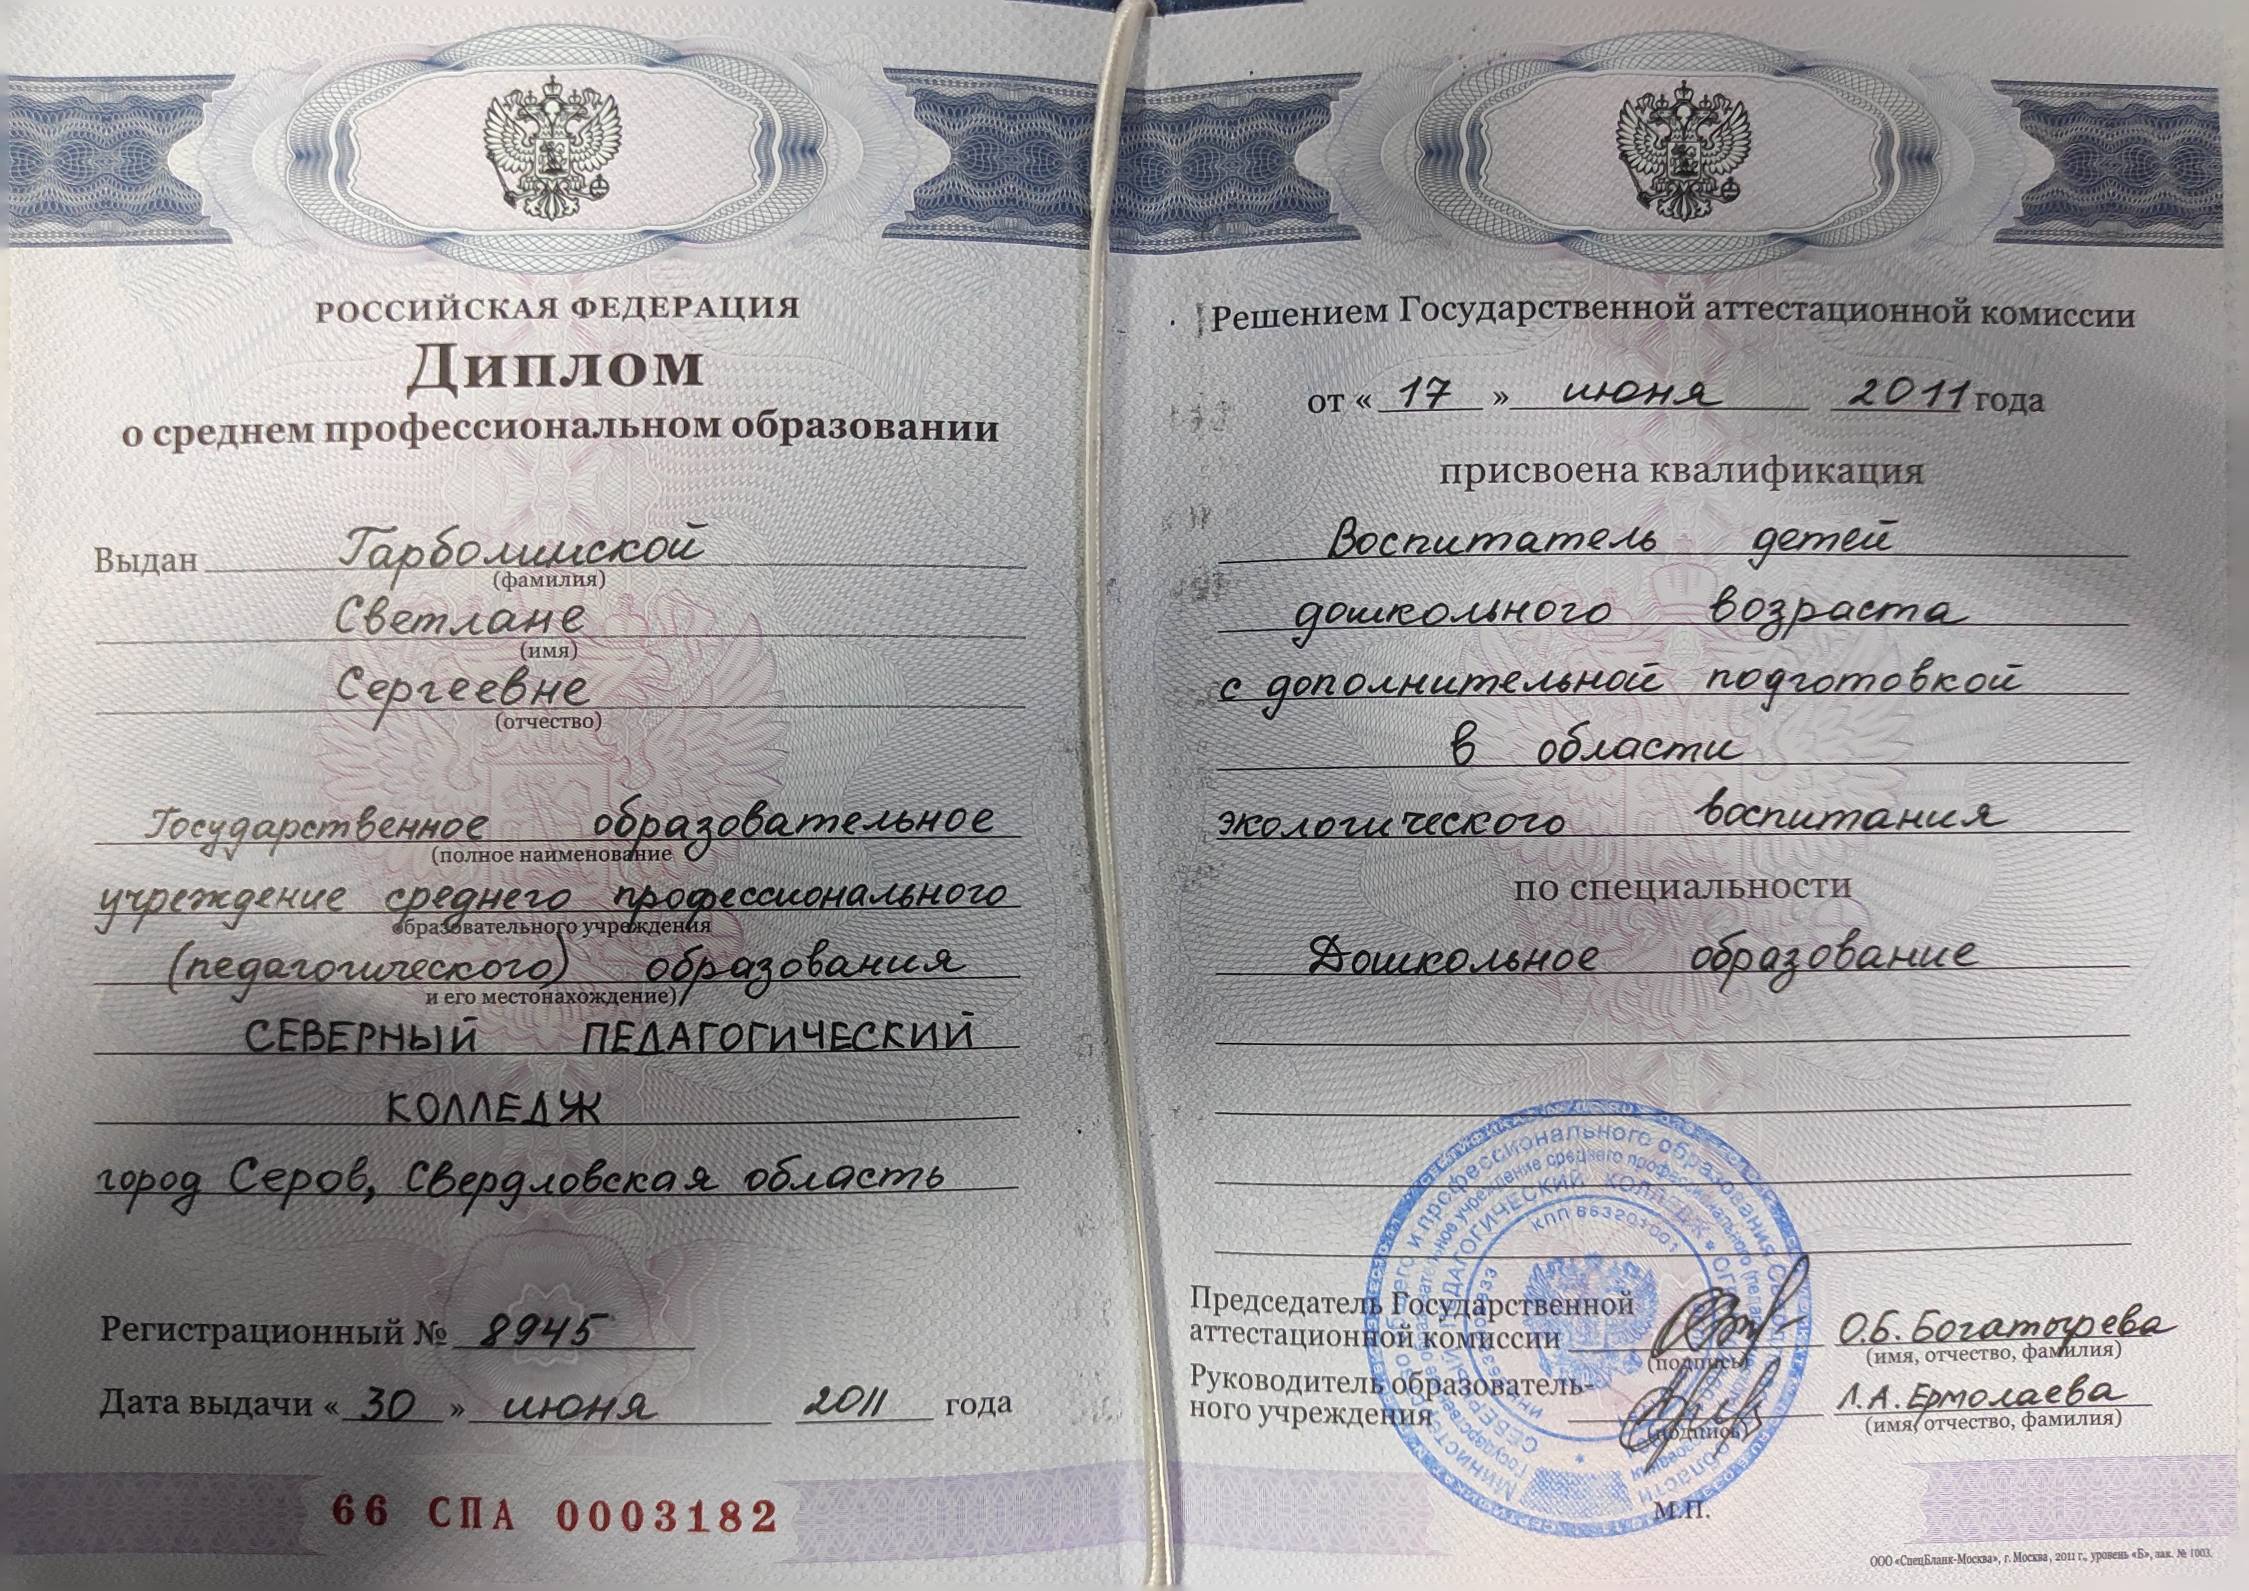 РОССИЙСКАЯ ФЕДЕРАЦИЯ
Диплом
о среднем профессиональном образовании
Выдан Гарболинской
(фамилия)
Светлане
(имя)
Сергеевне
(отчество)
Государственное образовательное
(полное наименование
учреждение среднего профессионального
образовательного учреждения
(педагогического) образования
и его местонахождение)
СЕВЕРНЫЙ ПЕДАГОГИЧЕСКИЙ
КОЛЛЕДЖ
город Серов, Свердловская область
Регистрационный № 8945
Дата выдачи « 30 » июня 2011 года
66 СПА 0003182
Решением Государственной аттестационной комиссии
от « 17 » июня 2011 года
присвоена квалификация
Воспитатель детей
дошкольного возраста
с дополнительной подготовкой
в области
экологического воспитания
по специальности
Дошкольное образование
Председатель Государственной
аттестационной комиссии О.Б. Богатырева
(подпись) (имя, отчество, фамилия)
Руководитель образователь-
ного учреждения Л.А. Ермолаева
(подпись) (имя, отчество, фамилия)
М.П.
КПП 663201001
ООО «СпецБланк-Москва», г. Москва, 2011 г., уровень «Б», зак. № 1003.